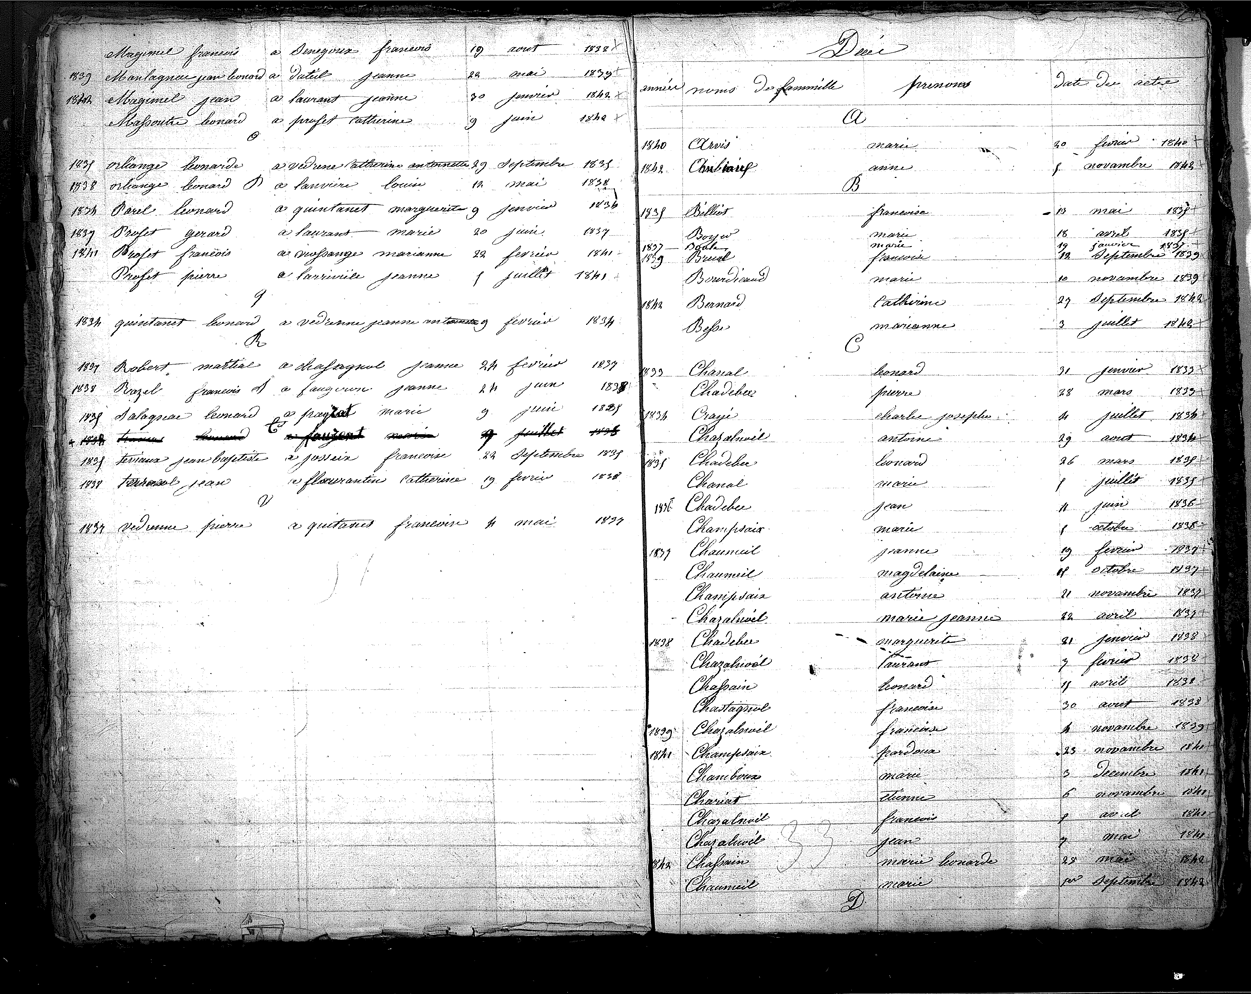 Magimel francois a Senegoux francois 19 aout 1838
1839 Manlagnac jean leonard a datel jeanne 22 mai 1839
1842 Magimel jean a laurant jeanne 30 janvier 1842
Massoutre leonard a profet catherine 9 juin 1842
O
1835 orliange leonarde a vedrenne catherine antoinette 29 septembre 1835
1838 orliange leonard a lanviere louise 12 mai 1838
P
1834 Parel leonard a quintanet marguerite 9 janvier 1834
1837 Profet gerard a laurant marie 20 juin 1837
1841 Profet francois a moissange marianne 22 fevrier 1841
Profet pierre a larriviele jeanne 5 juillet 1841
q
1834 quintanet leonard a vedrenne jeanne 9 fevrier 1834
R
1837 Robert martial a chassagnol jeanne 24 fevrier 1837
1838 Razel francois a faugeron jeanne 24 juin 1838
S
1835 Salagnac leonard a marie 9 juin 1835
T
1838 leonard a marie 19 juillet 1838
1835 teriaux jean baptiste a jasseix francoise 22 septembre 1835
1838 jean a flourantin catherine 19 fevrier 1838
V
1837 vedrenne pierre a quitanet francoise 4 mai 1837
Décé
année noms de fammille prenoms date des actes
A
1840 Arvis marie 20 fevrier 1840
1842 anne 5 novembre 1842
B
1835 Billiot francoise 13 mai 1835
Boyer marie 18 avril 1835
1837 marie 19 janvier 1837
1839 Bruel francoise 12 septembre 1839
Bourdicaud marie 10 novembre 1839
1842 Bernard Catherine 27 septembre 1842
Besse marianne 3 juillet 1842
C
1833 Chanal leonard 31 janvier 1833
Chadebec pierre 28 mars 1833
1834 Crayi charle josephe 4 juillet 1834
Chazalnoël antoine 29 aout 1834
1835 Chadebec leonard 26 mars 1835
Chanal marie 5 juillet 1835
1836 Chadebec jean 11 juin 1836
Champsaix marie 5 octobre 1836
1837 Chaumeil jeanne 19 fevrier 1837
Chaumeil magdelaine 18 octobre 1837
Champsaix antoine 21 novembre 1837
Chazalnoël marie jeanne 22 avril 1837
1838 Chadebec marguerite 21 janvier 1838
Chazalnoël laurant 7 fevrier 1838
Chassain leonard 15 avril 1838
Chastagnol francoise 30 aout 1838
1839 Chazalnoël francoise 4 novembre 1839
1841 Champsaix pardoux 23 novembre 1841
Chamboux marie 3 decembre 1841
Chariat etienne 6 novembre 1841
Chazalnoël francois 8 avril 1841
Chazalnoël jean 7 mai 1841
1842 Chassain marie leonarde 28 mai 1842
Chaumeil marie 1er septembre 1842
33
D